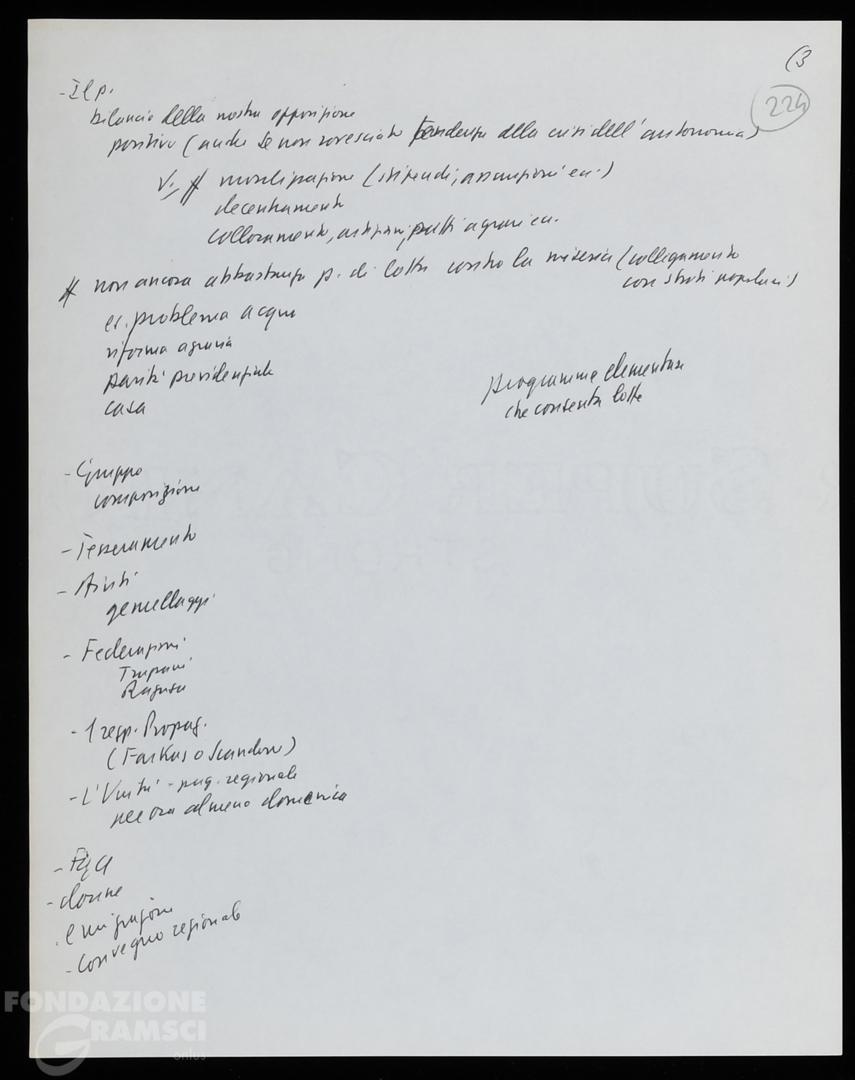 (3
224
- Il p.
bilancio della nostra opposizione
positivo (anche se non rovesciata tendenza della crisi dell'autonomia)
V. # moralizzazione (stipendi, assunzioni ecc.)
decentramento
collocamento, artigiani, patti agrari ecc.
# non ancora abbastanza p. di lotta contro la miseria (collegamento
con strati popolari)
es. problema acqua
riforma agraria
parità previdenziale
casa
programma elementare
che consenta lotte
- Gruppo
composizione
- Tesseramento
- Aiuti
gemellaggi
- Federazioni
Trapani
Ragusa
- 1 resp. Propag.
(Farkas o Scandone)
- L'Unità - pag. regionale
per ora almeno domenica
- Fgci
- donne
. emigrazione
- Convegno regionale
FONDAZIONE
GRAMSCI
onlus